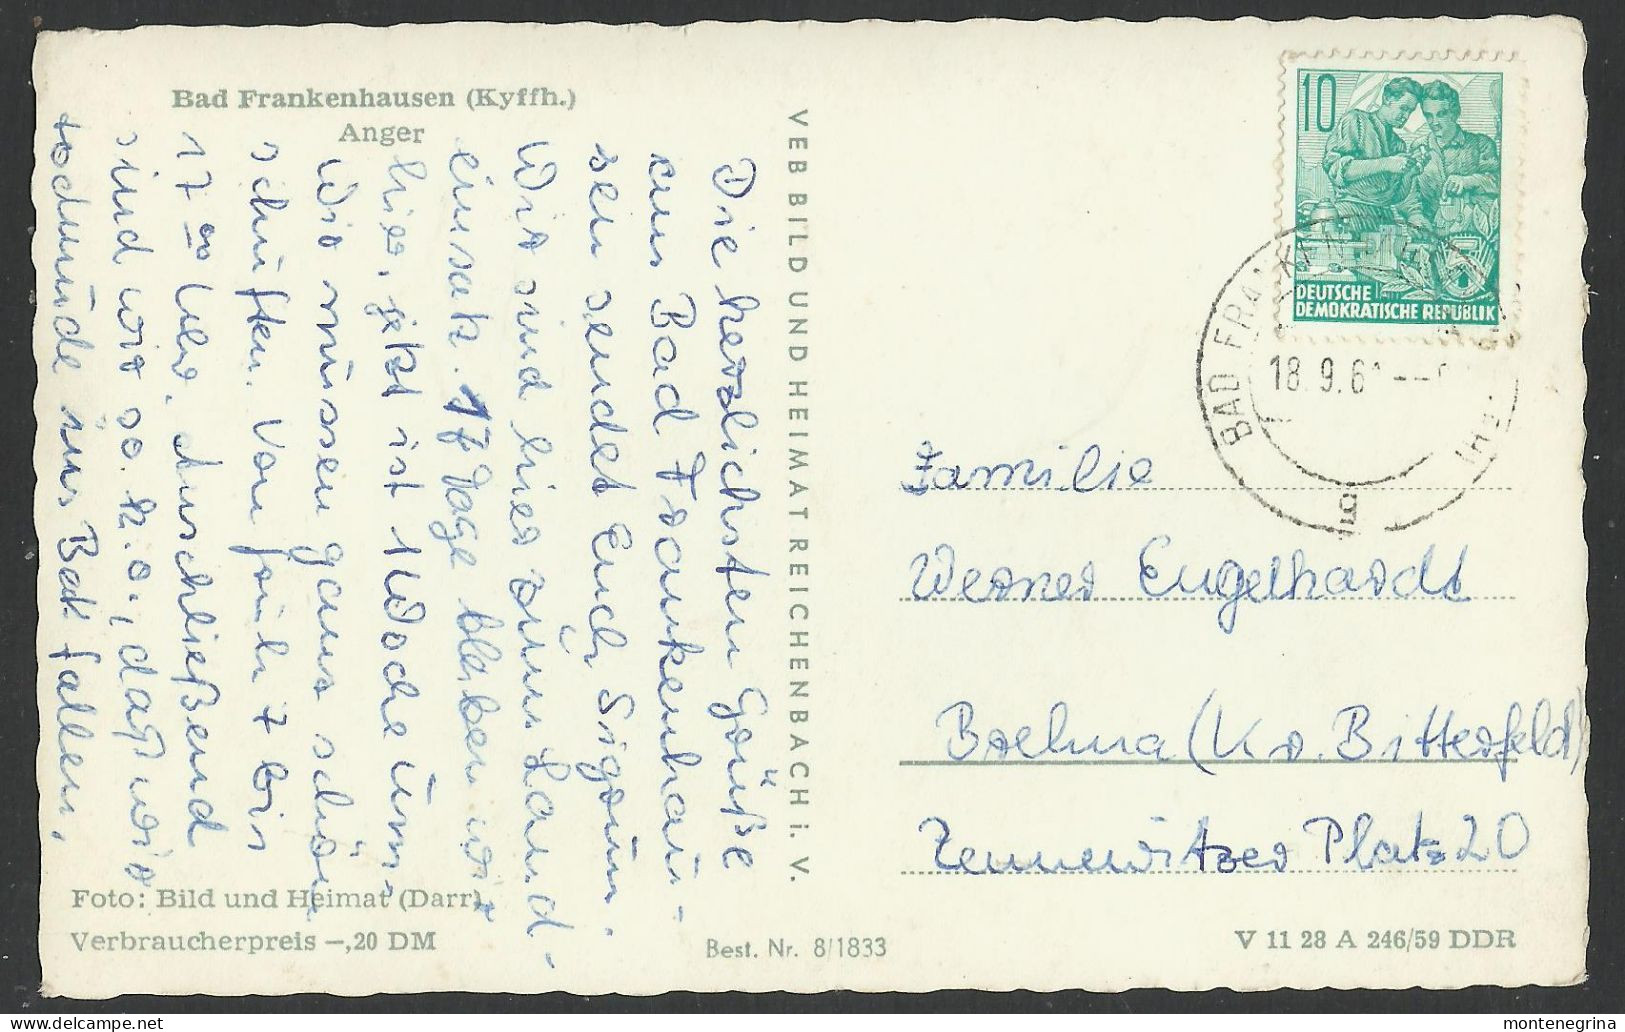 Bad Frankenhausen (Kyffh.)
Anger
Die herzlichsten Grüße
aus Bad Frankenhau-
sen sendet Euch Sigrun.
Wir sind hier zum Land-
einsatz. 17 Tage bleiben wir
hier, jetzt ist 1 Woche um.
Wir müssen ganz schön
schuften. Von früh 7 bis
17 00 Uhr. Anschließend
sind wir so k.o., daß wir
todmüde ins Bett fallen.
Foto: Bild und Heimat (Darr)
Verbraucherpreis —,20 DM
VEB BILD UND HEIMAT REICHENBACH i. V.
Best. Nr. 8/1833
10
DEUTSCHE
DEMOKRATISCHE REPUBLIK
BAD FRANKENHAUSEN
18.9.6
Familie
Werner Engelhardt
Brehna (Kr. Bitterfeld)
Zennewitzer Platz 20
V 11 28 A 246/59 DDR
montenegrina